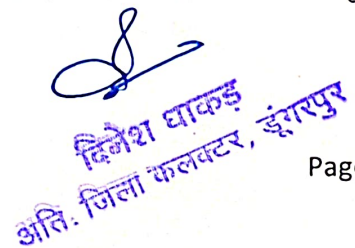 दिनेश धाकड़
अति. जिला कलक्टर, डूंगरपुर
Page